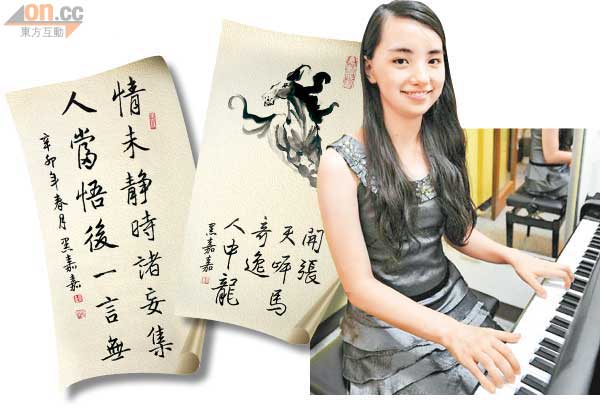 on.cc
東方互動
情未静時諸妄集
人當悟後一言無
辛卯年春月 黑嘉嘉
開張
天岸馬
奇逸
人中龍
黑嘉嘉